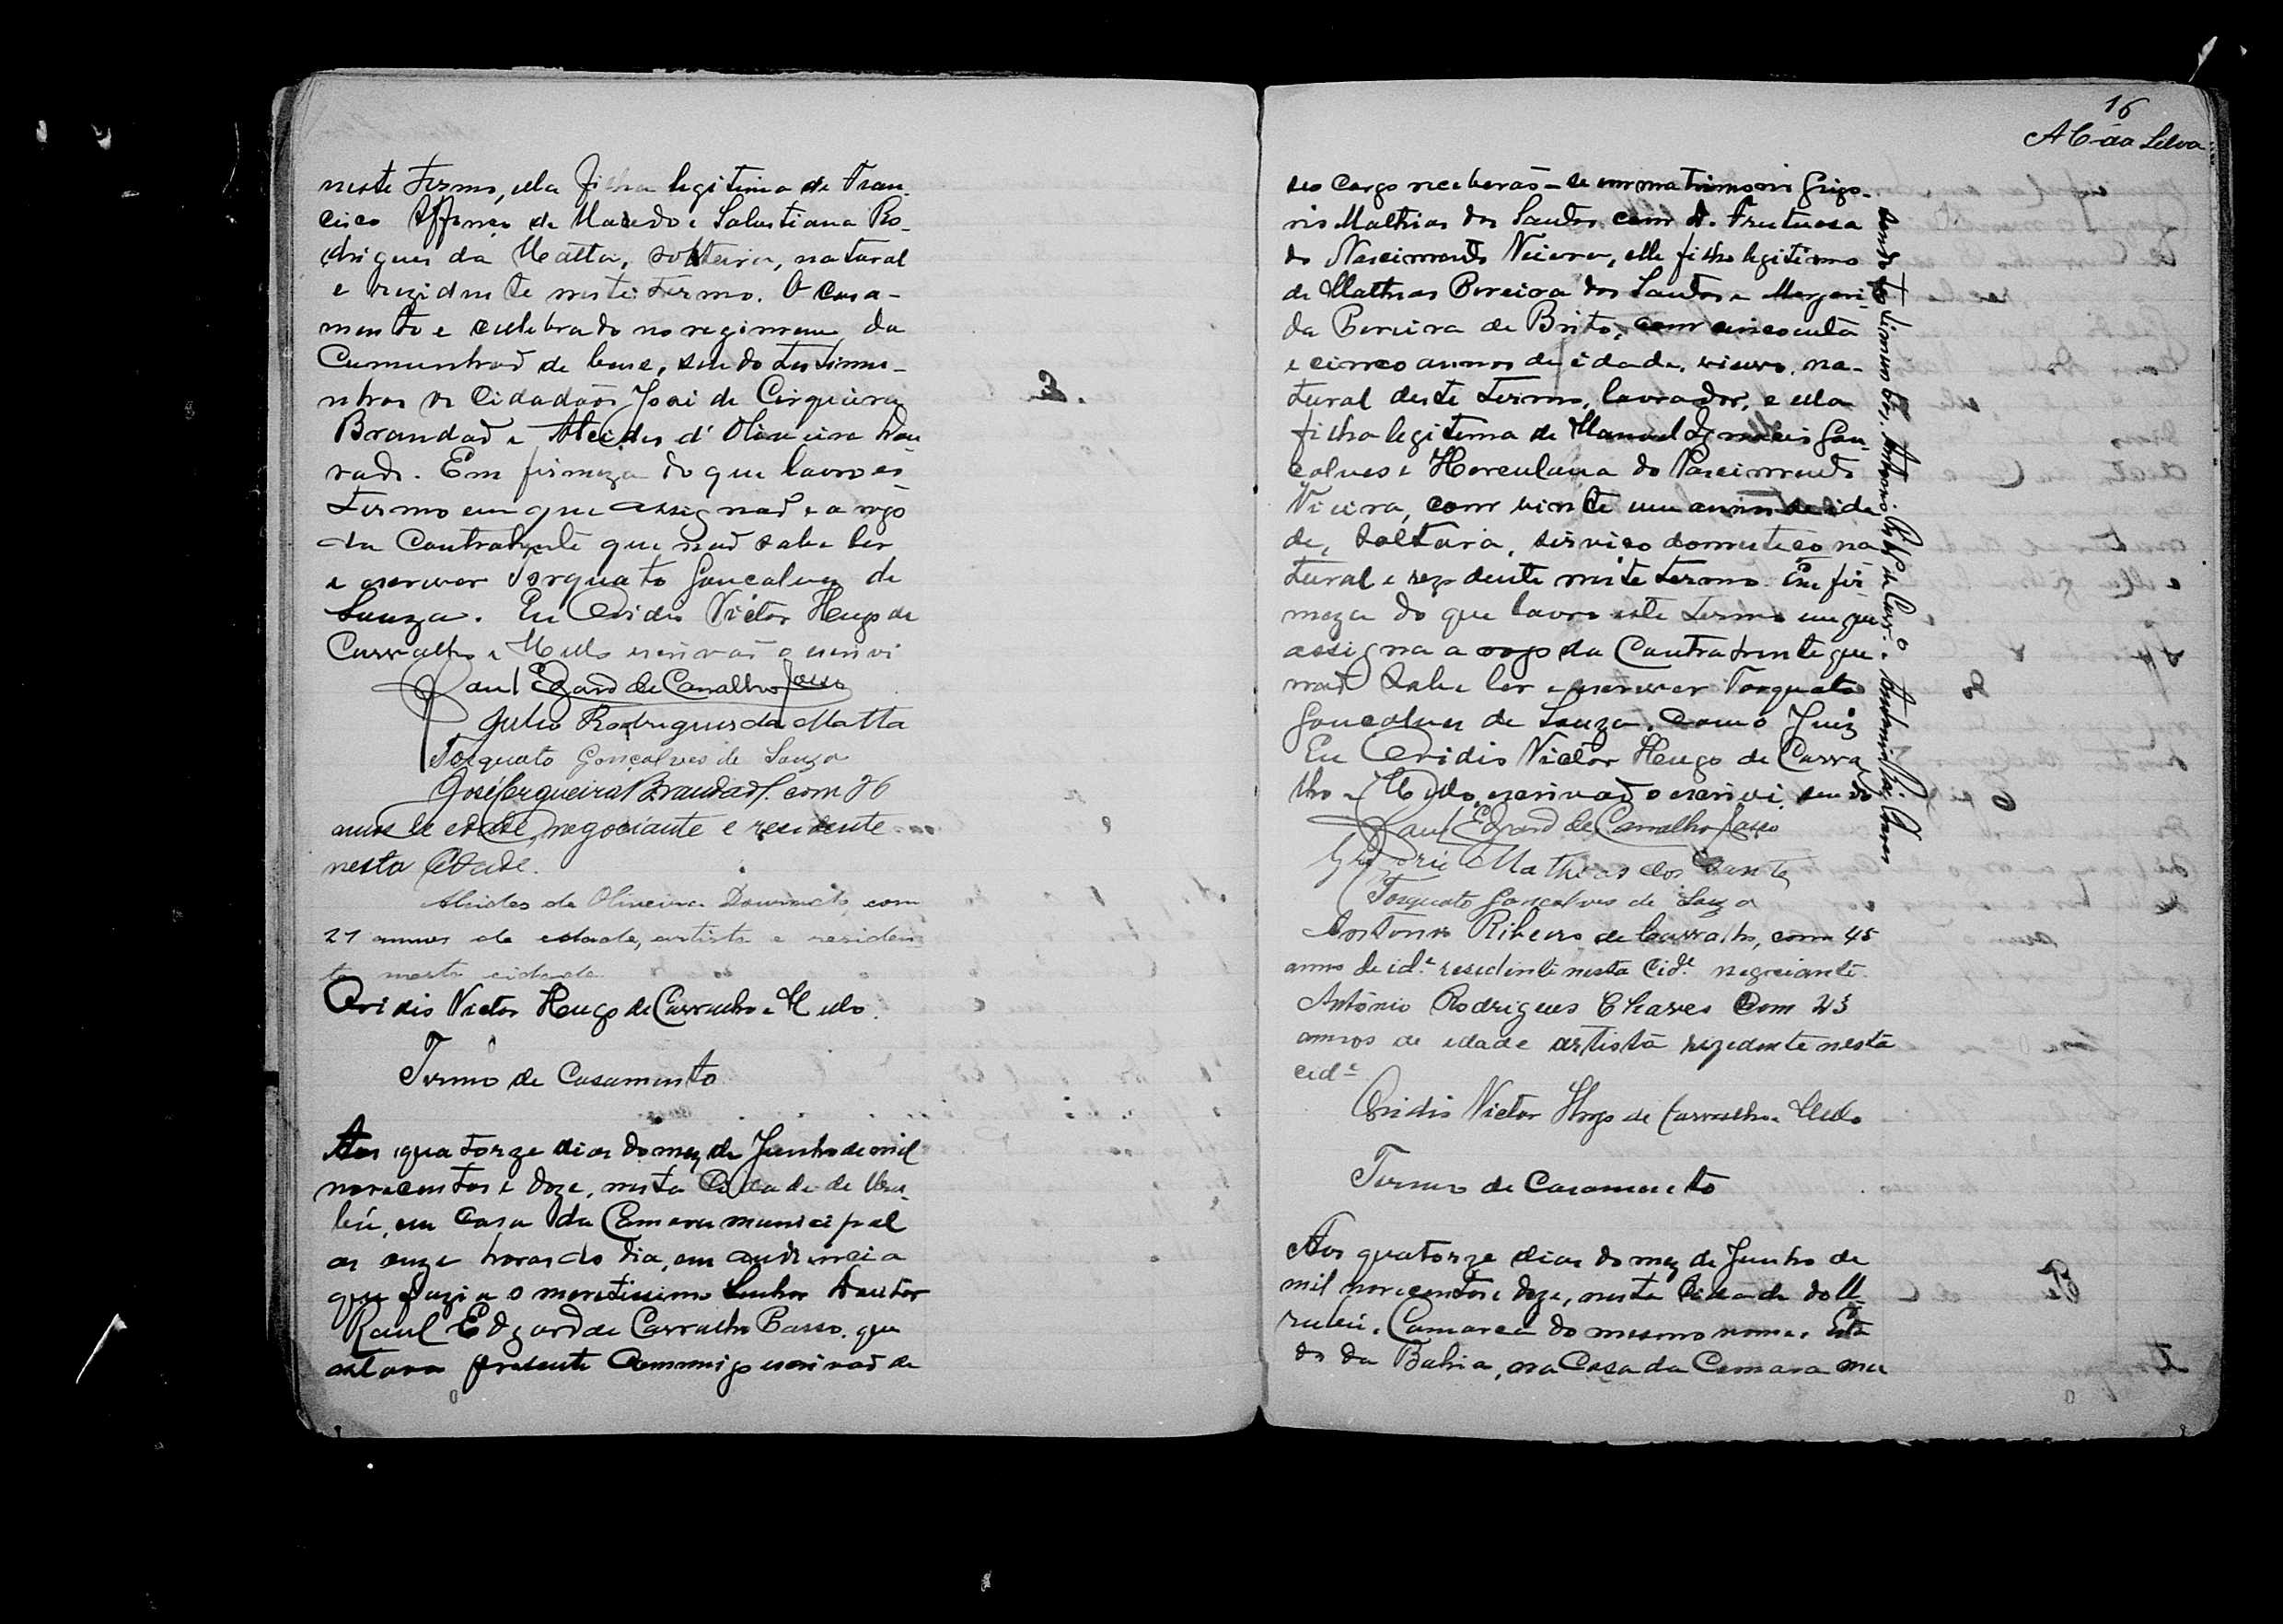 neste Termo, ella filha legitima de Fran-
cisco Affonço de Macedo e Salustiana Ro-
drigues da Matta, solteira, natural
e rezidente neste Termo. O casa-
mento e celebrado no regimem da
Cumunhaõ de bens, sendo testimu-
nhas os Cidadaõs José de Cirqueira
Brandaõ e Alcides d'Oliveira Dou
rado. Em firmeza do que lavro es
Termo em que assignaõ e a rogo
da Contrahente que naõ sabe ler
e escrever Torquato Goncalves de
Souza. Eu Ovidio Victor Hugo de
Carvalho e Mello escrivaõ o escrivi
Raul Edgard de Carvalho Basso
Julio Rodrigues da Matta
Torquato Gonçalves de Souza
José Cerqueira Brandaõ. com 26
annos de edade, negociante e residente
nesta Cidade.
Alcides de Oliveira Dourado, com
21 annos de edade, artista e residen
te nesta cidade
Ovidio Victor Hugo de Carvalho e Mello.
Termo de Casamento
Aos quatorze dias do mez de Junho de mil
novecentos e doze, nesta Cidade de Uru-
bú, em Casa da Camera municipal
as onze horas do dia, em audiencia
que fazia o meretissimo Senhor Doutor
Raul Edgard de Carvalho Basso. que
estava presente Commigo escrivaõ de
16
A C da Silva
seo cargo receberaõ-se em matrimonio Grigo-
rio Mathias dos Santos com D. Frutuosa
do Nascimento Vieira, elle filho legitimo
de Mathias Pereira dos Santos e Margari-
da Pereira de Brito, com cincoenta
e cinco annos de idade, viuvo, na-
tural deste Termo, lavrador, e ella
filha legitima de Manoel Ignacio Gon
calves e Herculana do Nascimento
Vieira, com vinte um annos de ida
de, Solteira, serviço domestico na
tural e rezidente neste termo. Em fir
meza do que lavro este termo em que
assigna a rogo da Contratente que
naõ sabe ler e escrever Torquato
Goncalves de Souza, como Juiz
Eu Ovidio Victor Hugo de Carva
lho e Mello, escrivaõ o escrivi, sendo
sendo testimunhas, Antonio Ribº de Carº e Antonio Rodri. Chaves
Raul Edgard de Carvalho Basso
Gregorio Mathias dos Santos
Torquato Gonçalves de Souza
Antonio Ribeiro de Carvalho, com 45
anno de id.e residente nesta Cid.e negociante.
Antônio Rodrigues Chaves Com 23
annos de idade artista rezedente nesta
cid.e
Ovidio Victor Hugo de Carvalho e Mello
Termo de Casamento
Aos quatorze dias do mez de Junho de
mil novecentos e doze, nesta Cidade do U-
rubú, Comarca do mesmo nome, Esta
do da Bahia, na Casa da Camara mu